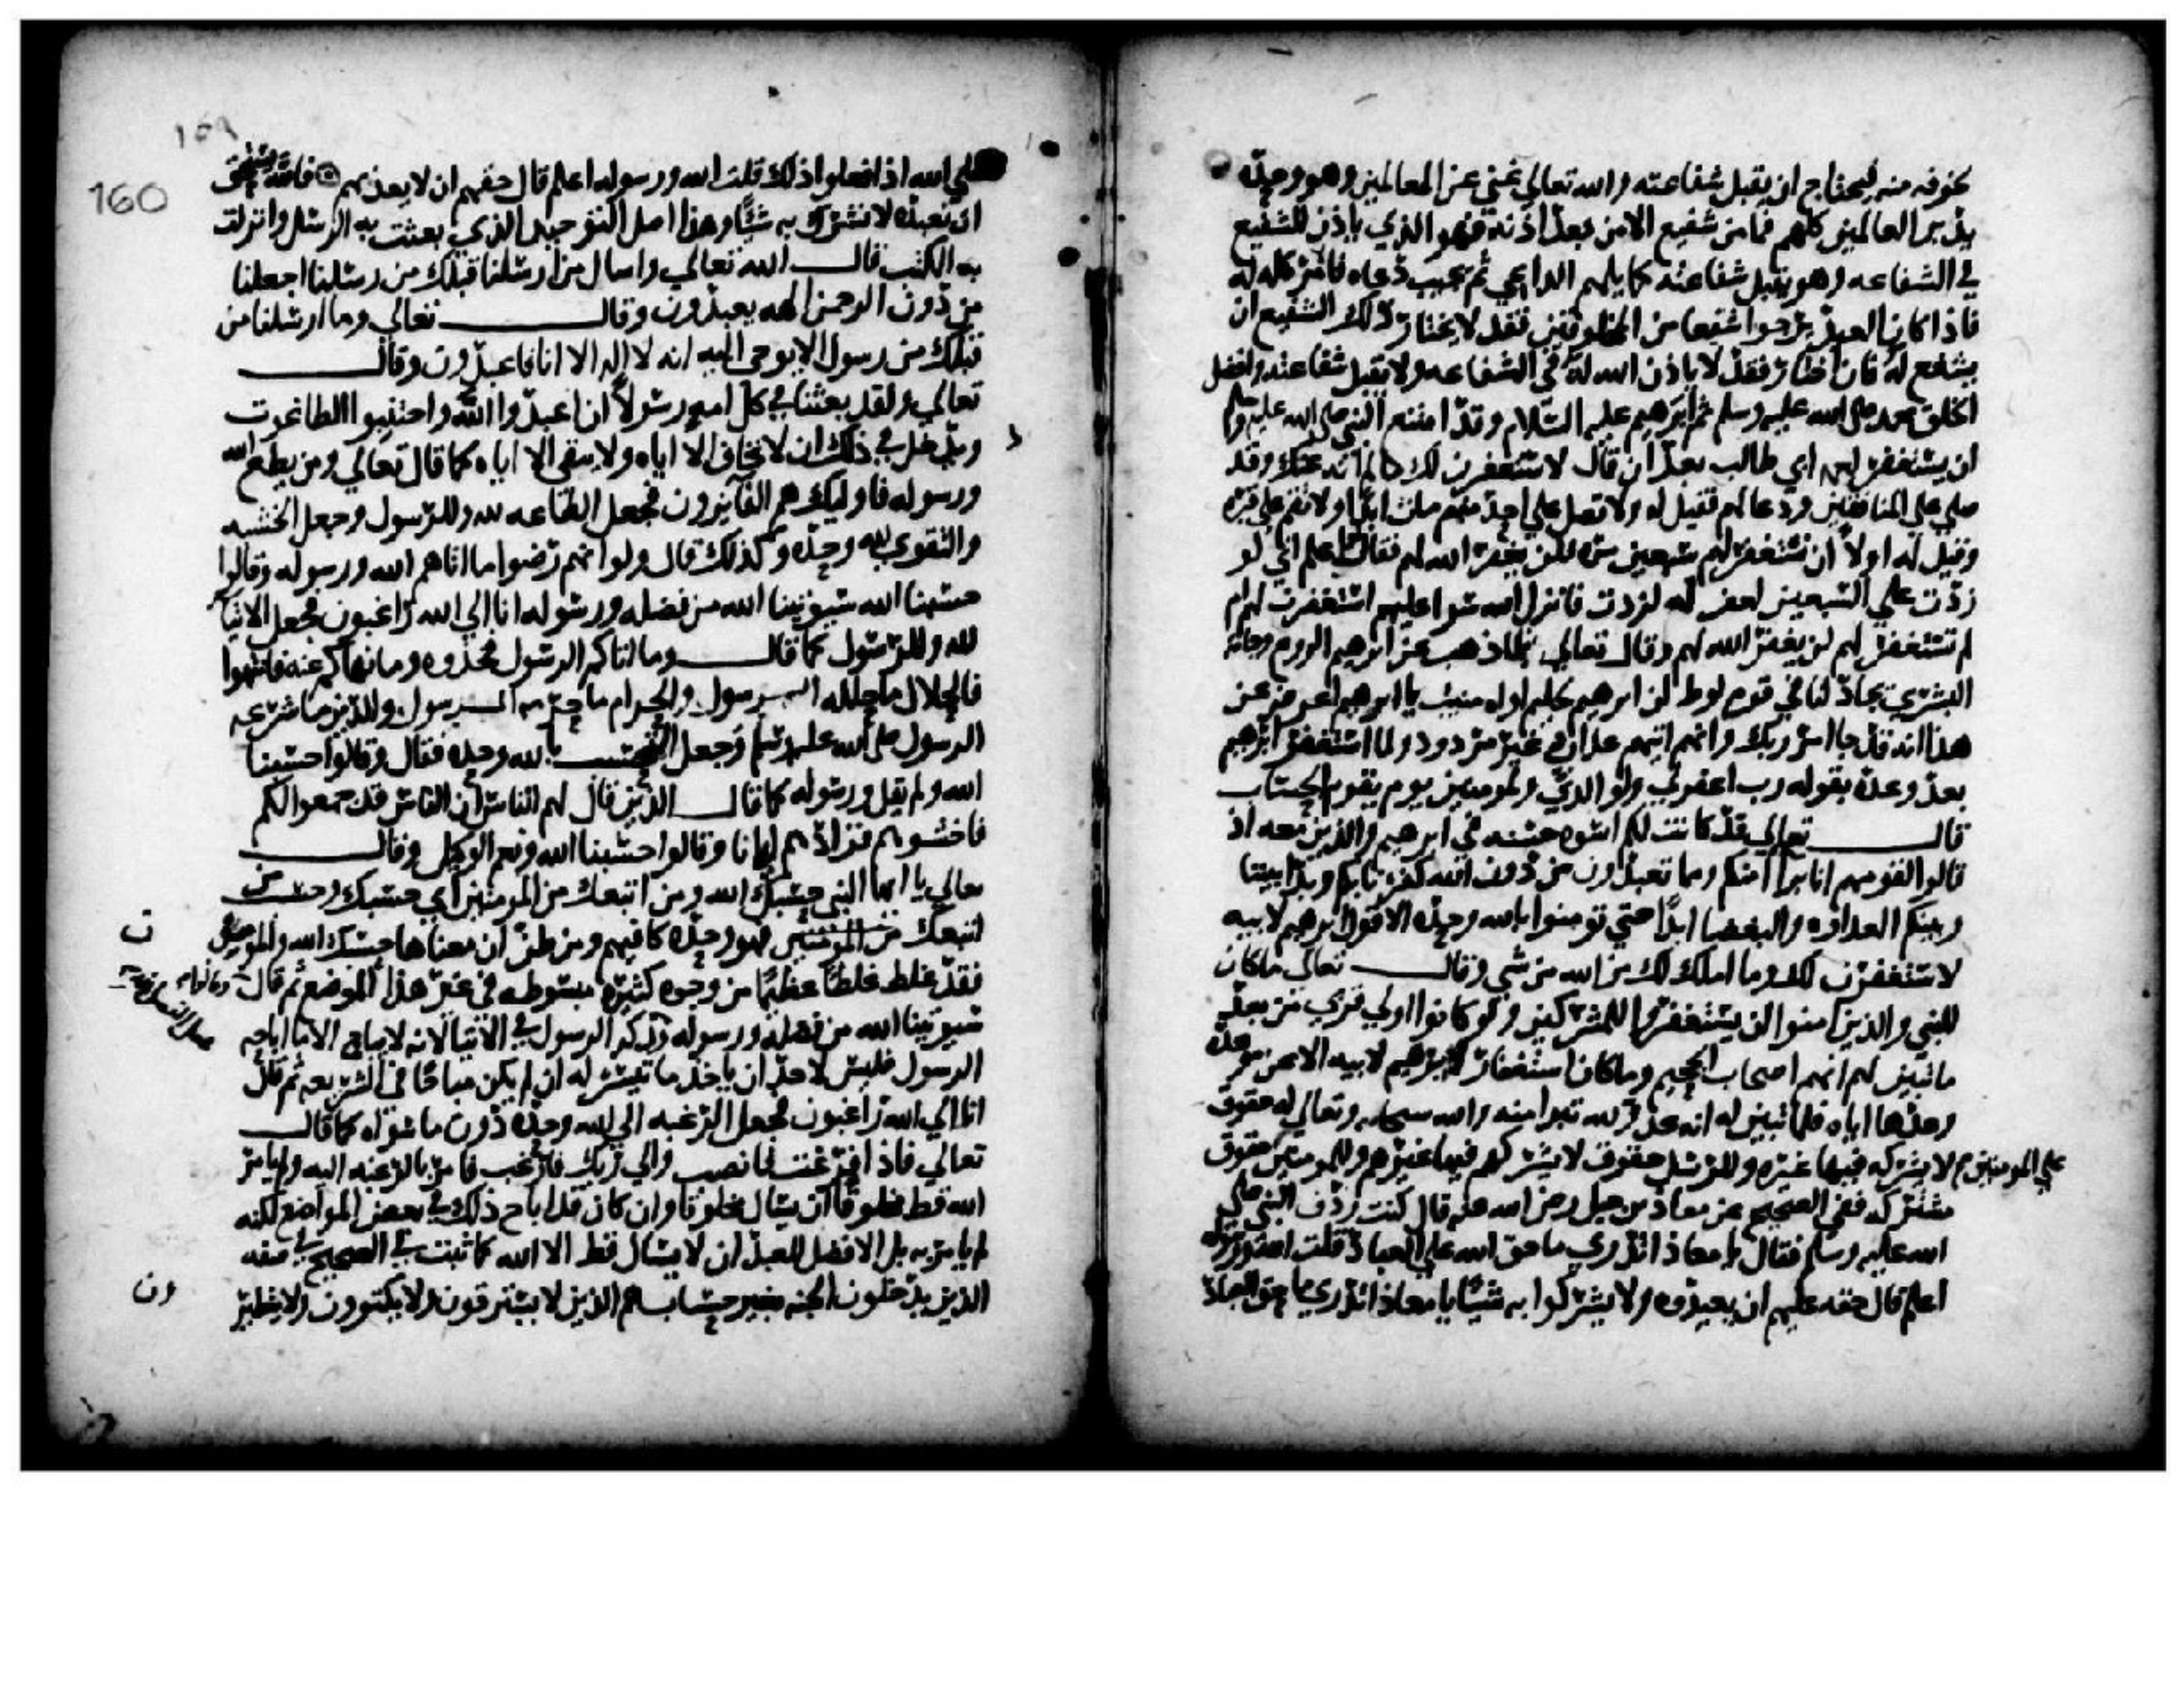 يخوفه منه فيحتاج ان يقبل شفاعته والله تعالي غني عن العالمين وهو وحده
يدبر العالمين كلهم فما من شفيع الا من بعد اذنه فهو الذي ياذن للشفيع
في الشفاعه وهو يقبل شفاعته كما يلهم الداعي ثم يجيب دعاه فالامر كله له
فاذا كان العبد يرجوا شفيعا من المخلوقين فقد لا يختار ذلك الشفيع ان
يشفع له فان اختار فقد لا ياذن الله له في الشفاعه ولا يقبل شفاعته وافضل
الخلق محمد صلى الله عليه وسلم ثم ابرهيم عليه السلام وقد امتنع النبي صلى الله عليه وسلم
ان يستغفر لعمه ابي طالب بعد ان قال لاستغفرن لك ما لم انه عنك وقد
صلي علي المنافقين ودعا لهم فقيل له ولا تصل علي احد منهم مات ابدا ولا تقم علي قبره
وقيل له اولا ان تستغفر لهم سبعين مره فلن يغفر الله لهم فقال لو اعلم اني لو
زدت علي السبعين لغفر له لزدت فانزل الله سوا عليهم استغفرت لهم ام
لم تستغفر لهم لن يغفر الله لهم وقال تعالي فلما ذهب عن ابرهيم الروع وجاته
البشري يجادلنا في قوم لوط ان ابرهيم لحليم اواه منيب يا ابرهيم اعرض عن
هذا انه قد جا امر ربك وانهم اتيهم عذاب غير مردود ولما استغفر ابرهيم
بعد وعده بقوله رب اغفر لي ولوالدي وللمومنين يوم يقوم الحساب
قال تعالي قد كانت لكم اسوه حسنه في ابرهيم والذين معه اذ
قالوا لقومهم انا برآ منكم ومما تعبدون من دون الله كفرنا بكم وبدا بيننا
وبينكم العداوه والبغضا ابدا حتي تومنوا بالله وحده الا قول ابرهيم لابيه
لاستغفرن لك وما املك لك من الله من شي وقال تعالي ما كان
للنبي والذين امنوا ان يستغفروا للمشركين ولو كانوا اولي قربي من بعد
ما تبين لهم انهم اصحاب الجحيم وما كان استغفار ابرهيم لابيه الا عن موعده
وعدها اياه فلما تبين له انه عدو لله تبرا منه والله سبحانه وتعالي له حقوق
لا يشركه فيها غيره وللرسل حقوق لا يشركهم فيها غيرهم وللمومنين حقوق
علي المومنين
مشتركه ففي الصحيح عن معاذ بن جبل رضي الله عنه قال كنت ردف النبي صلي
الله عليه وسلم فقال يا معاذ اتدري ما حق الله علي العباد قلت الله ورسوله
اعلم قال حقه عليهم ان يعبدوه ولا يشركوا به شيئا يا معاذ اتدري ما حق العباد
160
علي الله اذا فعلوا ذلك قلت الله ورسوله اعلم قال حقهم ان لا يعذبهم فالله يستحق
ان نعبده لا نشرك به شيئا وهذا اصل التوحيد الذي بعثت به الرسل وانزلت
به الكتب قال الله تعالي واسال من ارسلنا قبلك من رسلنا اجعلنا
من دون الرحمن الهه يعبدون وقال تعالي وما ارسلنا من
قبلك من رسول الا يوحى اليه انه لا اله الا انا فاعبدون وقال
تعالي ولقد بعثنا في كل امه رسولا ان اعبدوا الله واجتنبوا الطاغوت
ويدخل في ذلك ان لا نخاف الا اياه ولا نتقي الا اياه كما قال تعالي ومن يطع الله
ورسوله فاوليك هم الفآيزون فجعل الطاعه لله وللرسول وجعل الخشيه
والتقوي لله وحده وكذلك قال ولو انهم رضوا ما اتاهم الله ورسوله وقالوا
حسبنا الله سيوتينا الله من فضله ورسوله انا الي الله راغبون فجعل الايتا
لله وللرسول كما قال وما اتاكم الرسول فخذوه وما نهاكم عنه فانتهوا
فالحلال ما حلله الرسول والحرام ما حرمه الرسول والدين ما شرعه
الرسول صلى الله عليه وسلم وجعل التحسب بالله وحده فقال وقالوا حسبنا
الله ولم يقل ورسوله كما قال الذين قال لهم الناس ان الناس قد جمعوا لكم
فاخشوهم فزادهم ايمانا وقالوا حسبنا الله ونعم الوكيل وقال
تعالي يا ايها النبي حسبك الله ومن اتبعك من المومنين اي حسبك وحسب من
اتبعك من المومنين فهو وحده كافيهم ومن ظن ان معناها حسبك الله والمومنون
فقد غلط غلطا عظيما من وجوه كثيره مبسوطه في غير هذا الموضع ثم قال وقالوا
سيوتينا الله من فضله ورسوله وذكر الرسول في الايتا لانه لا يباح الا ما اباحه
الرسول فليس لاحد ان ياخذ ما تيسر له ان لم يكن مباحا في الشريعه ثم قال
انا الي الله راغبون فجعل الرغبه الي الله وحده دون ما سواه كما قال
تعالي فاذا فرغت فانصب والي ربك فارغب فامر بالرغبه اليه ولم يامر
الله قط مخلوقا ان يسال مخلوقا وان كان قد اباح ذلك في بعض المواضع لكنه
لم يامر به بل الافضل للعبد ان لا يسال قط الا الله كما ثبت في الصحيح في صفه
الذين يدخلون الجنه بغير حساب هم الذين لا يسترقون ولا يكتوون ولا يتطير
ون